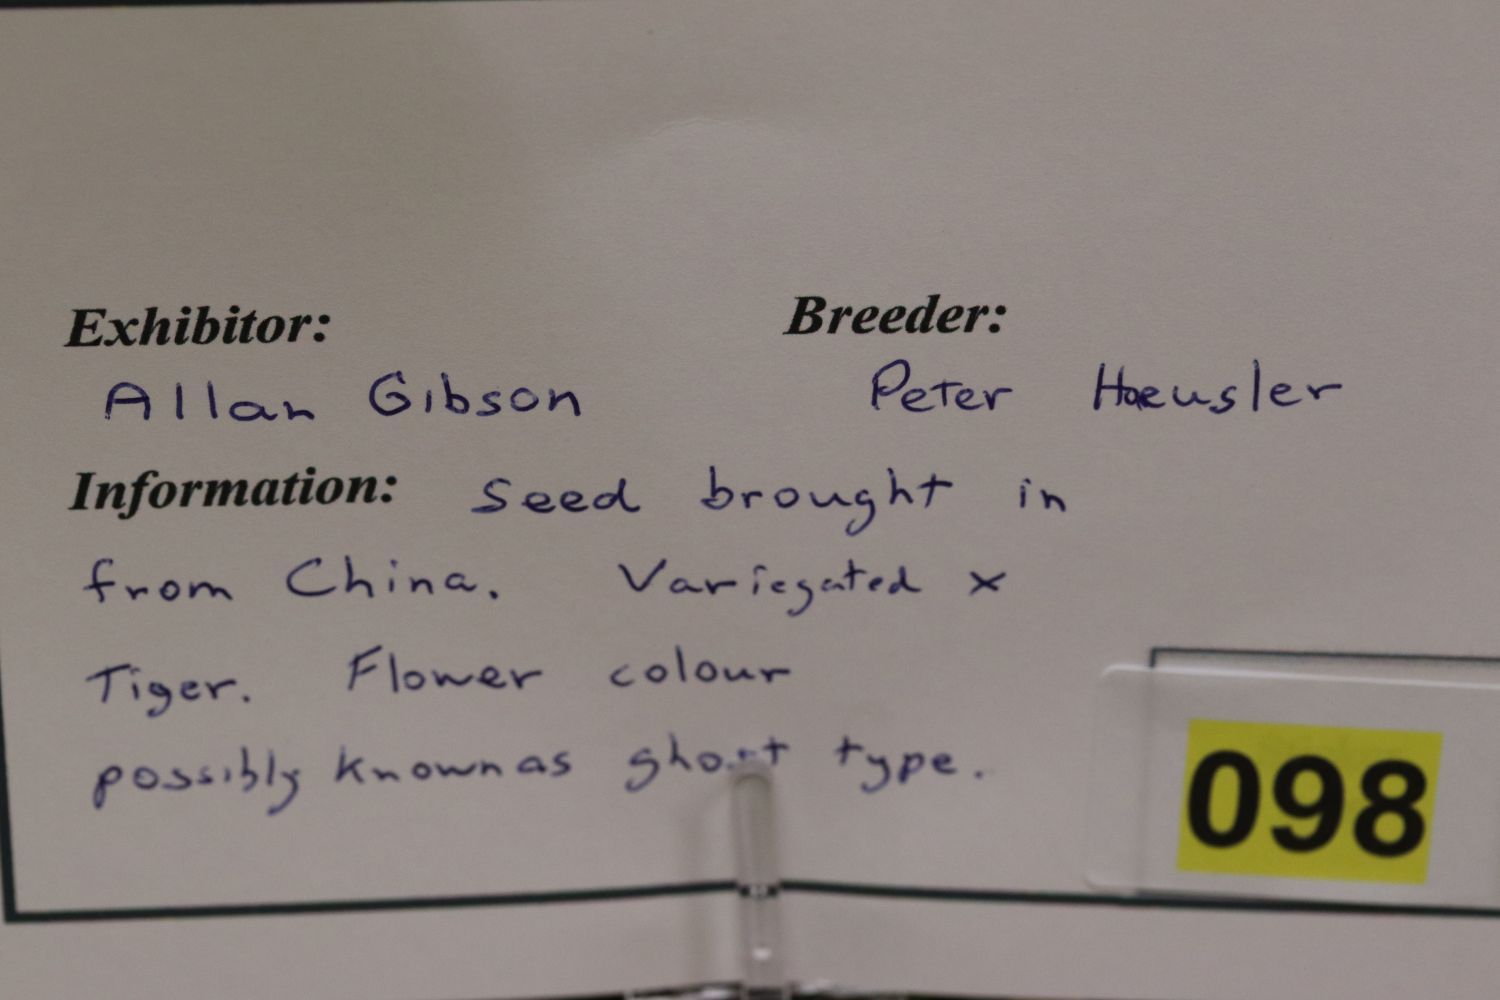 Exhibitor:
Allan Gibson
Breeder:
Peter Haeusler
Information: Seed brought in
from China. Variegated x
Tiger. Flower colour
possibly known as ghost type.
098